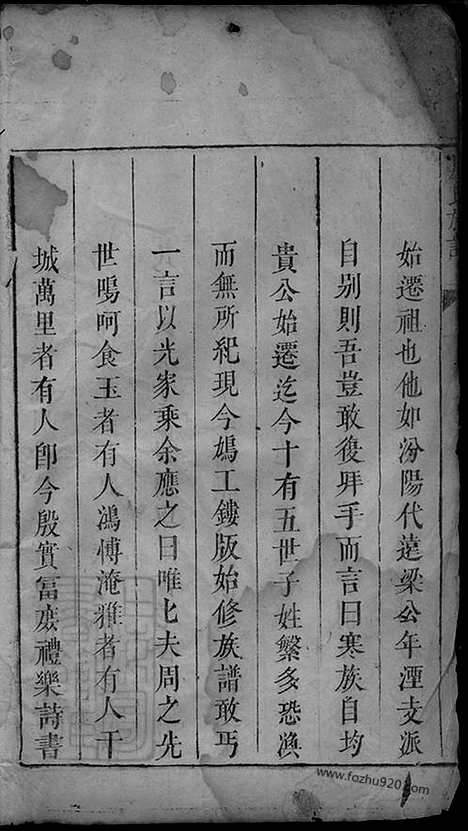 始遷祖也他如汾陽代遠梁公年湮支派
自別則吾豈敢後拜手而言曰寒族自均
貴公始遷迄今十有五世子姓繁多恐渙
而無所紀現今鳩工鏤版始修族譜敢丐
一言以光家乘余應之曰唯匕夫周之先
世鳴呵食玉者有人鴻愽淹雅者有人干
城萬里者有人卽今殷實富庶禮樂詩書
www.fozhu920.com